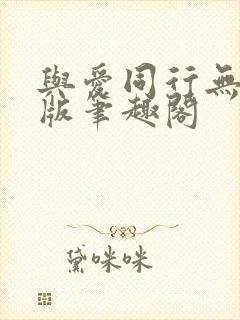 與愛同行無
版筆趣閣
黛咪咪